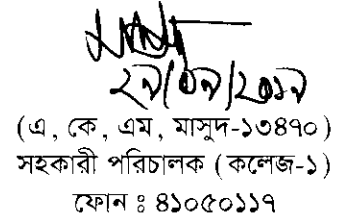 ২৯/০৯/২০১৯
(এ, কে, এম, মাসুদ-১৩৪৭০)
সহকারী পরিচালক ( কলেজ-১)
ফোন ঃ ৪১০৫০১১৭